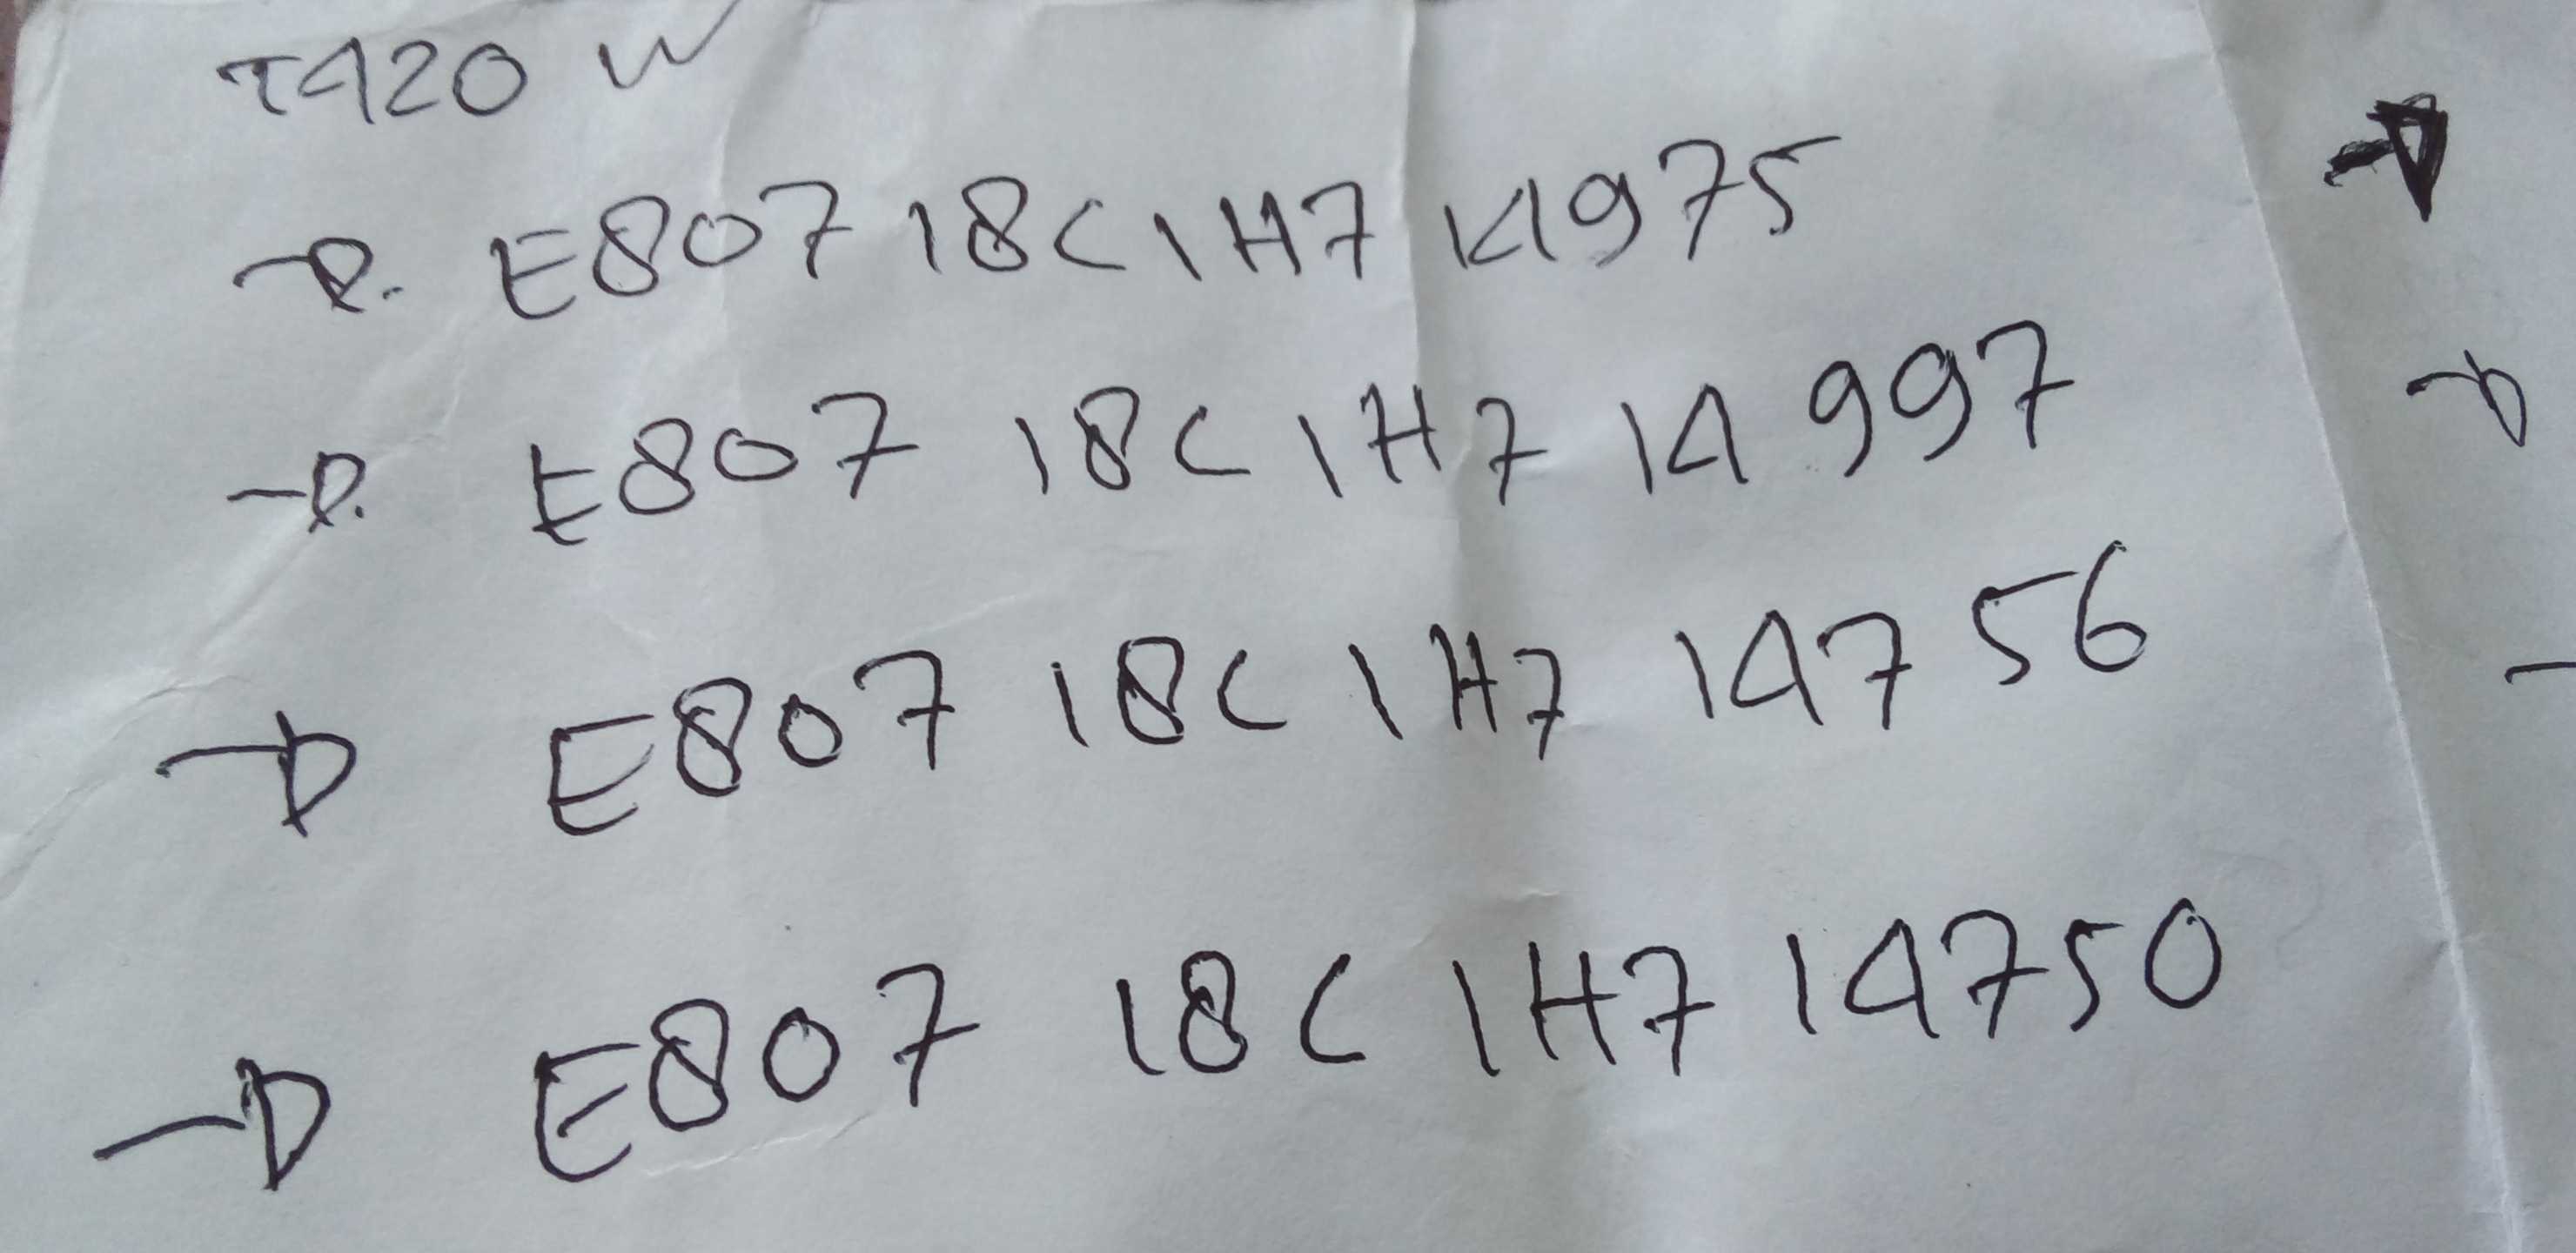 T420 W
→ E807 18C1H7 14975
→ E807 18C1H7 14997
→ E807 18C1H7 14756
→ E807 18C1H7 14750